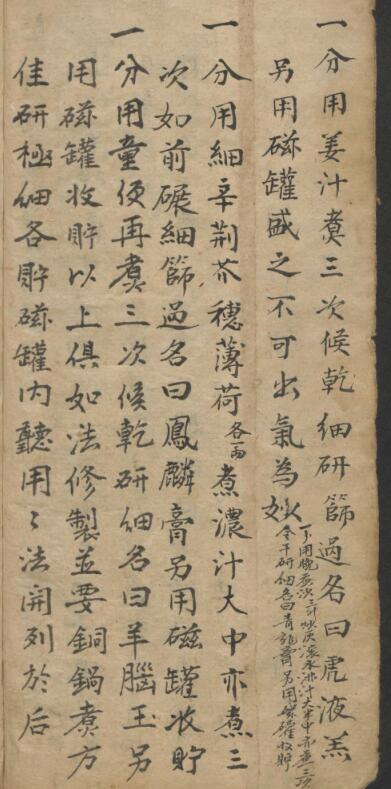 一分用姜汁煮三次候乾細研篩過名曰虎液羔
另用磁罐盛之不可出氣為妙
一分用細辛荆芥穗薄荷各一兩煮濃汁大中亦煮三
次如前碾細篩過名曰鳳麟膏另用磁罐收貯
一分用童便再煮三次候乾研細名曰羊腦玉另
用磁罐收貯以上俱如法修製並要銅鍋煮方
佳研極細各貯磁罐內聽用〻法開列於后